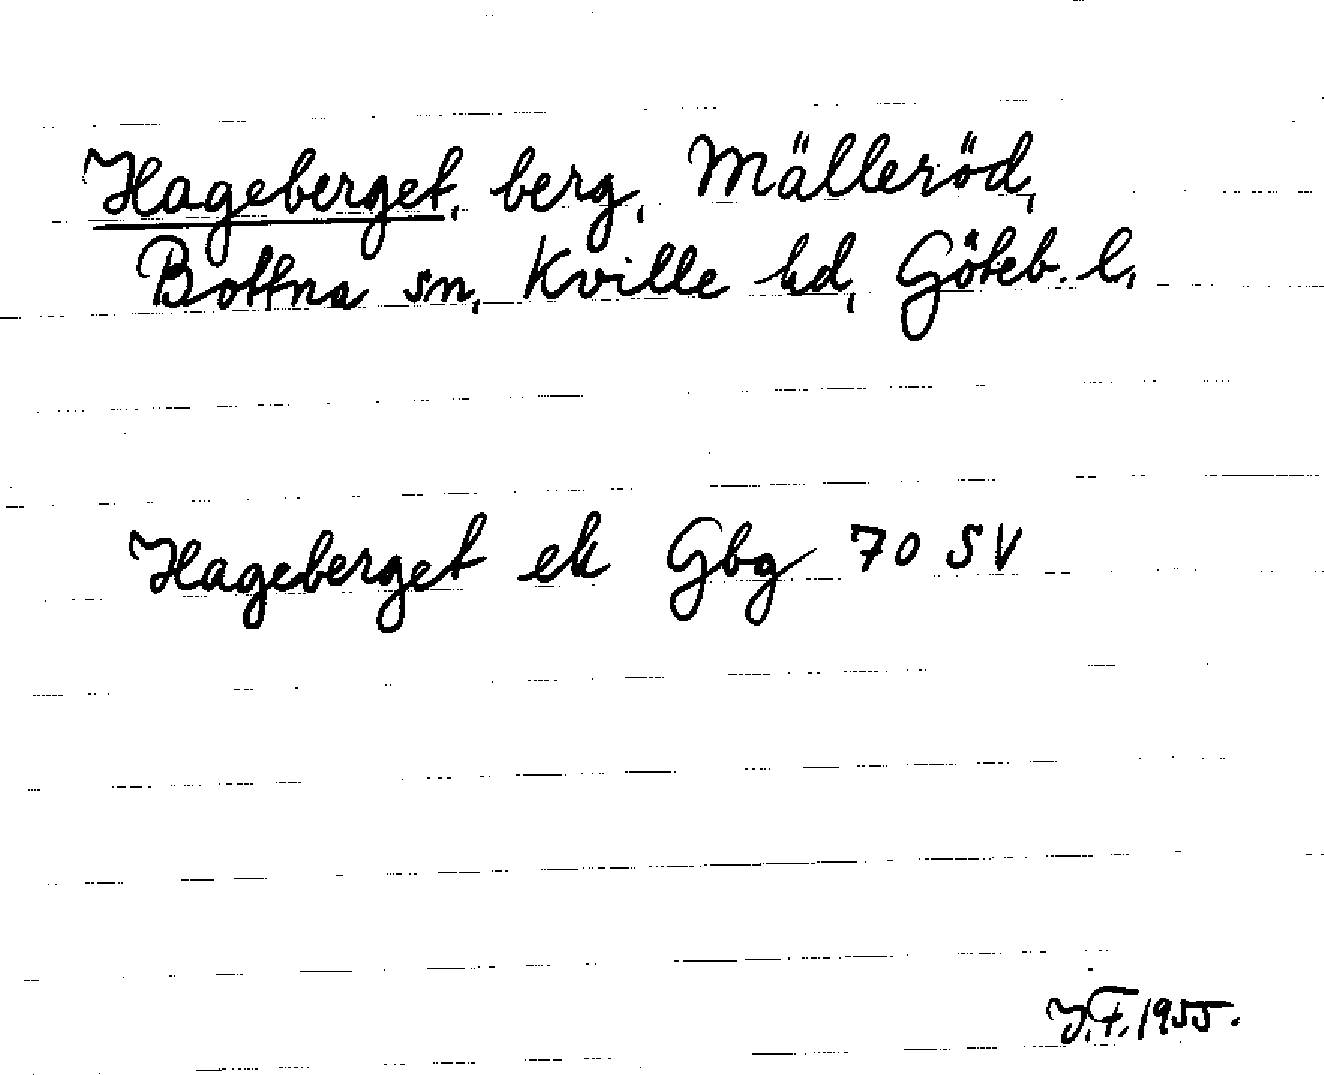 Hageberget, berg, Mälleröd,
Bottna sn, Kville hd, Göteb. l.
Hageberget ek Gbg 70 SV
J.F. 1955.